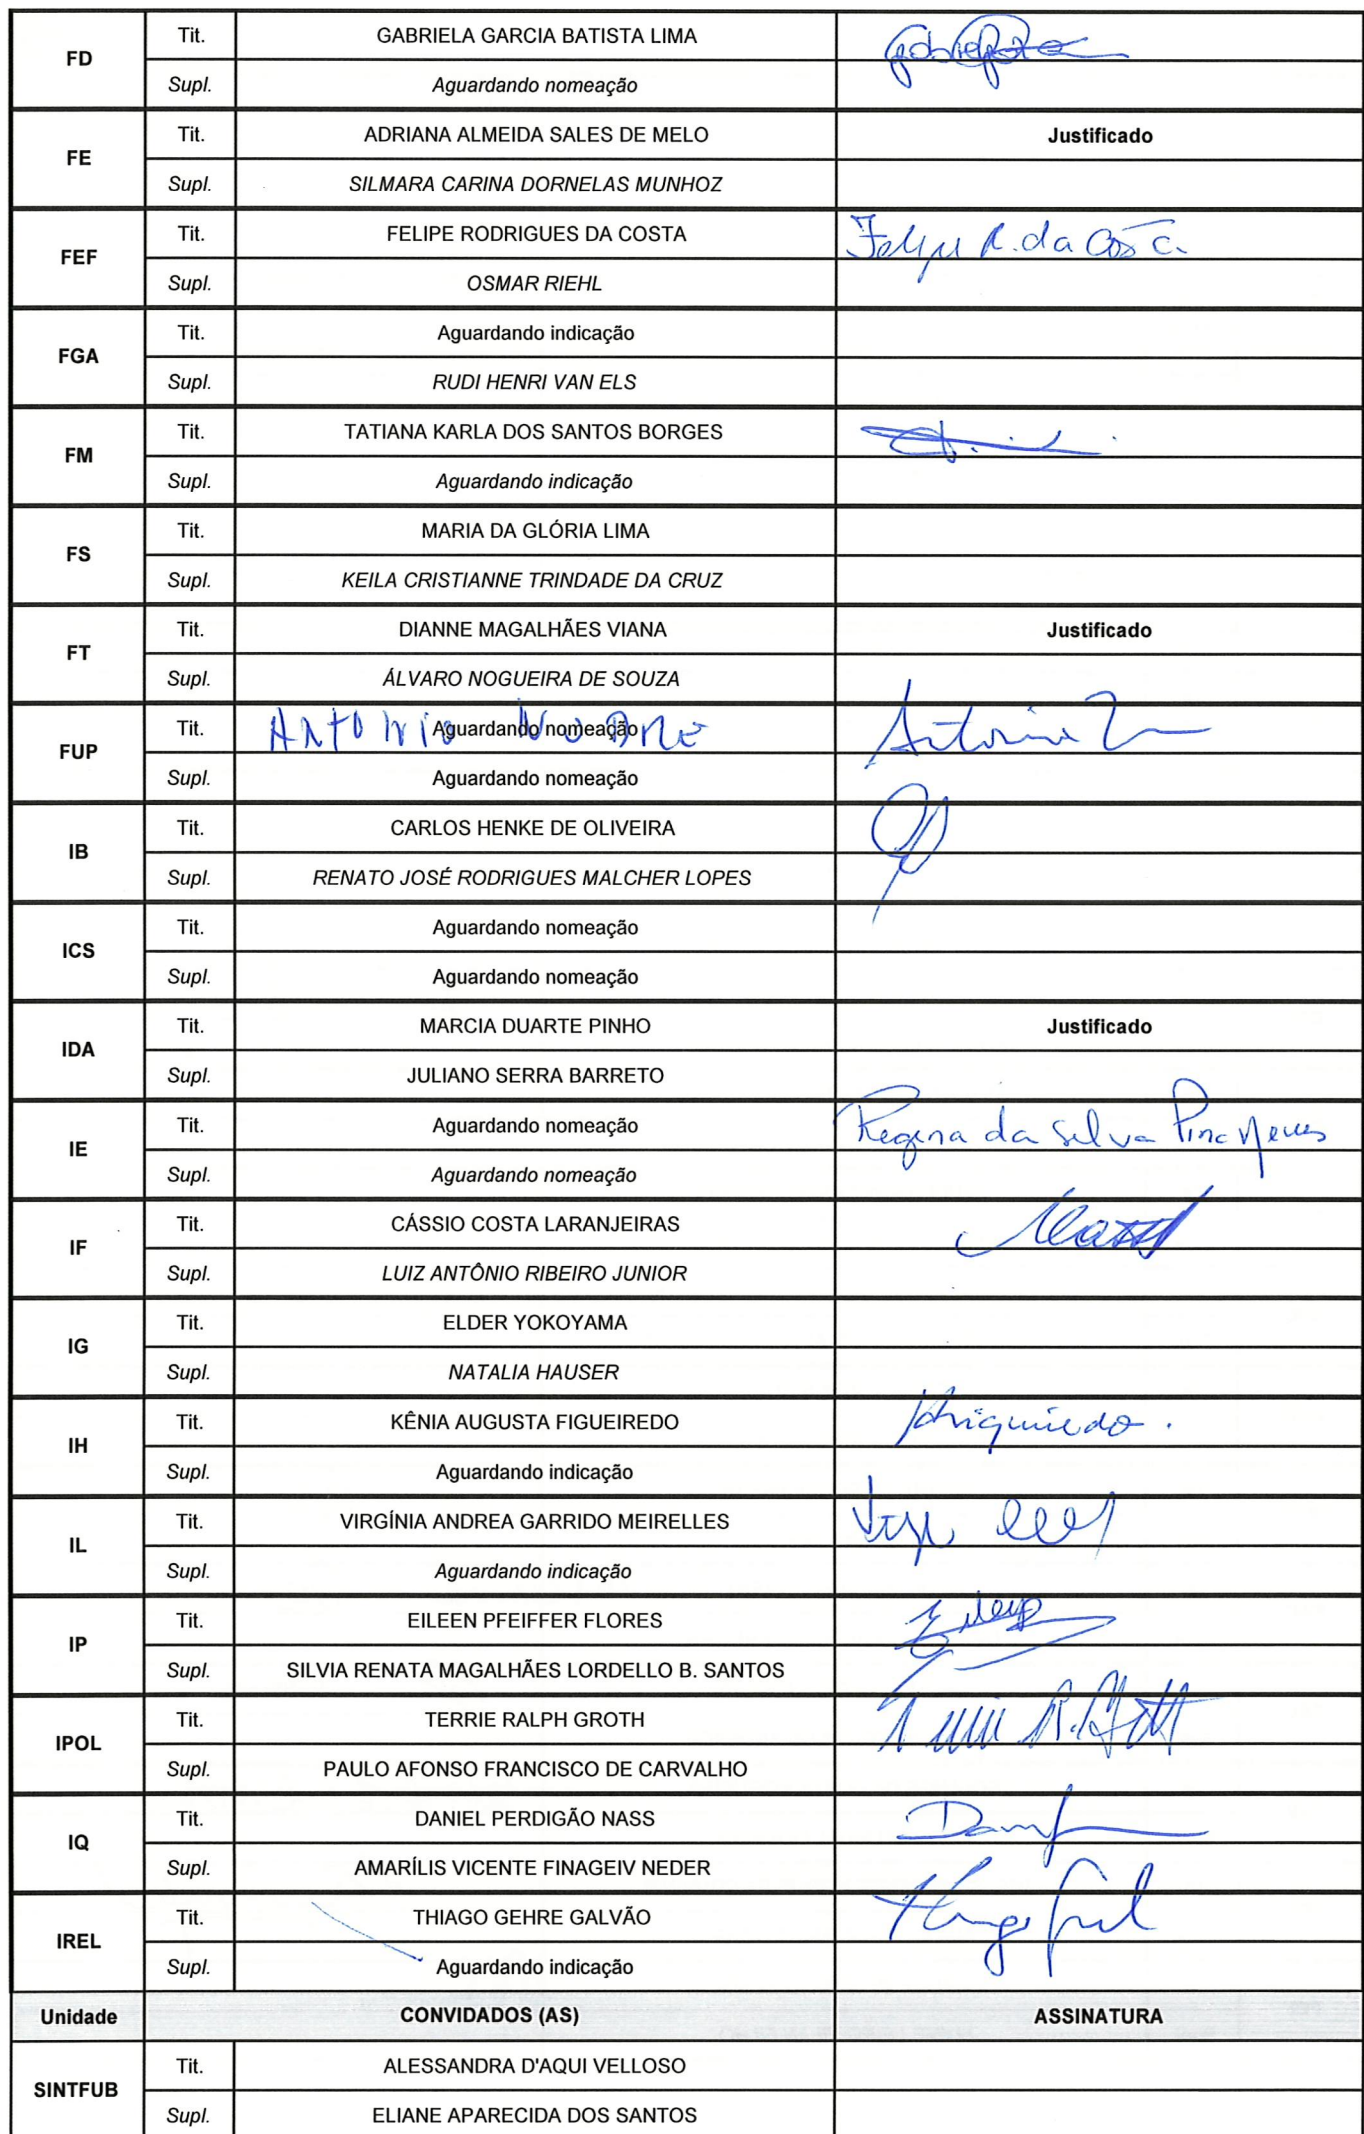 FD Tit. GABRIELA GARCIA BATISTA LIMA
Supl. Aguardando nomeação
FE Tit. ADRIANA ALMEIDA SALES DE MELO Justificado
Supl. SILMARA CARINA DORNELAS MUNHOZ
FEF Tit. FELIPE RODRIGUES DA COSTA Felipe R. da Costa
Supl. OSMAR RIEHL
FGA Tit. Aguardando indicação
Supl. RUDI HENRI VAN ELS
FM Tit. TATIANA KARLA DOS SANTOS BORGES
Supl. Aguardando indicação
FS Tit. MARIA DA GLÓRIA LIMA
Supl. KEILA CRISTIANNE TRINDADE DA CRUZ
FT Tit. DIANNE MAGALHÃES VIANA Justificado
Supl. ÁLVARO NOGUEIRA DE SOUZA
FUP Tit. Aguardando nomeação ANTONIO NOBRE Antonio
Supl. Aguardando nomeação
IB Tit. CARLOS HENKE DE OLIVEIRA
Supl. RENATO JOSÉ RODRIGUES MALCHER LOPES
ICS Tit. Aguardando nomeação
Supl. Aguardando nomeação
IDA Tit. MARCIA DUARTE PINHO Justificado
Supl. JULIANO SERRA BARRETO
IE Tit. Aguardando nomeação Regina da Silva Pina Neves
Supl. Aguardando nomeação
IF Tit. CÁSSIO COSTA LARANJEIRAS
Supl. LUIZ ANTÔNIO RIBEIRO JUNIOR
IG Tit. ELDER YOKOYAMA
Supl. NATALIA HAUSER
IH Tit. KÊNIA AUGUSTA FIGUEIREDO
Supl. Aguardando indicação
IL Tit. VIRGÍNIA ANDREA GARRIDO MEIRELLES
Supl. Aguardando indicação
IP Tit. EILEEN PFEIFFER FLORES
Supl. SILVIA RENATA MAGALHÃES LORDELLO B. SANTOS
IPOL Tit. TERRIE RALPH GROTH Terrie R. Groth
Supl. PAULO AFONSO FRANCISCO DE CARVALHO
IQ Tit. DANIEL PERDIGÃO NASS
Supl. AMARÍLIS VICENTE FINAGEIV NEDER
IREL Tit. THIAGO GEHRE GALVÃO
Supl. Aguardando indicação
Unidade CONVIDADOS (AS) ASSINATURA
SINTFUB Tit. ALESSANDRA D'AQUI VELLOSO
Supl. ELIANE APARECIDA DOS SANTOS